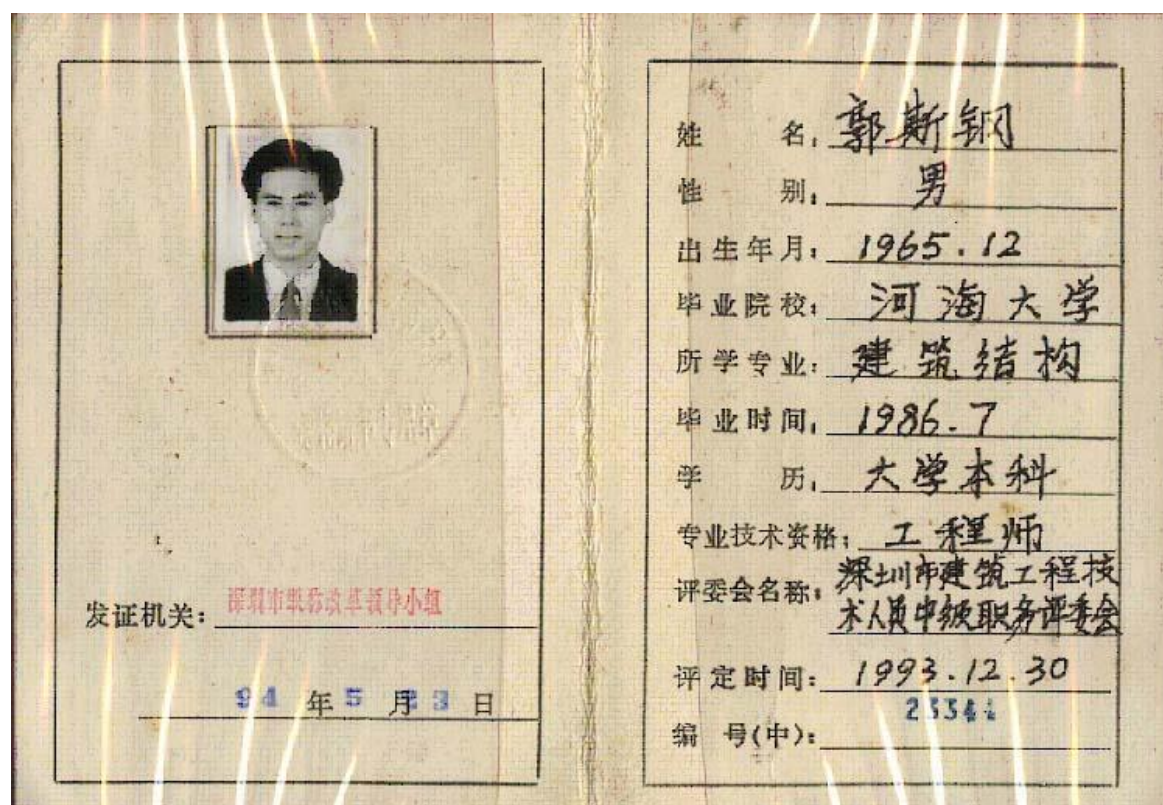 发证机关:深圳市职称改革领导小组
94年5月23日
姓名:郭斯钢
性别:男
出生年月:1965.12
毕业院校:河海大学
所学专业:建筑结构
毕业时间:1986.7
学历:大学本科
专业技术资格:工程师
评委会名称:深圳市建筑工程技
术人员中级职务评委会
评定时间:1993.12.30
编号(中):